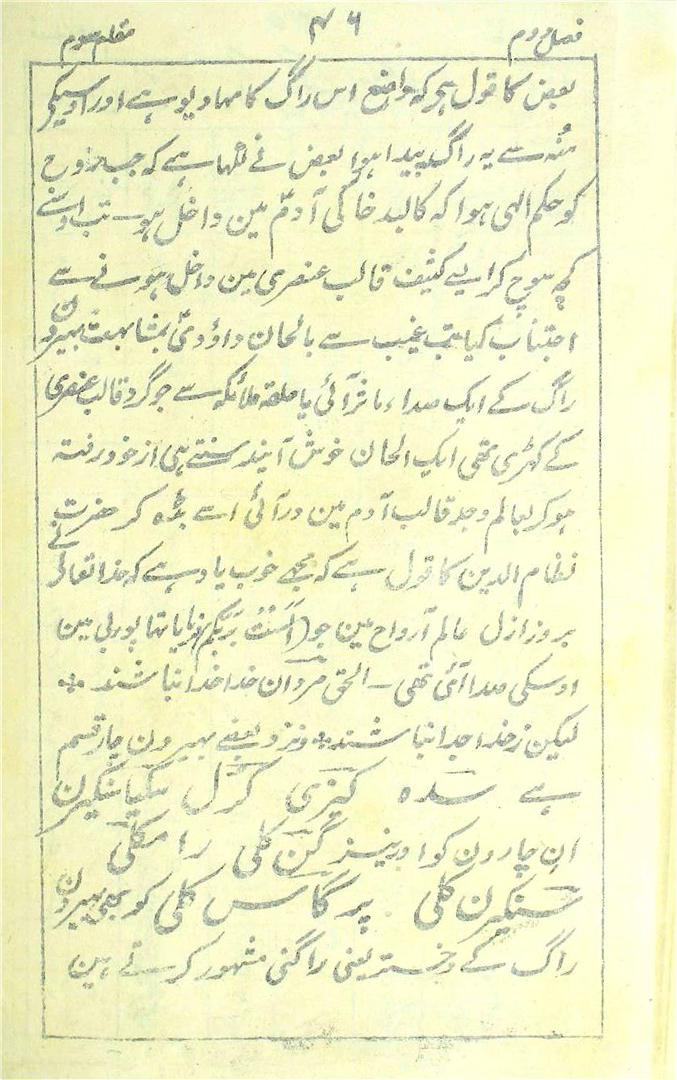 فصل دوم ۴۶ مقام سوم
بعض کا قول ہی کہ واضع اس راگ کا مہادیو ہے اور اوسیکے
مُنہ سے یہ راگ پیدا ہوا بعض نے لکہا ہے کہ جب روح
کو حکم الہی ہوا کہ کالبد خاکی آدمؑ مین داخل ہو۔ تب اوسنے
کچہ سوچ کر ایسے کثیف قالب عنصری مین داخل ہونے سے
اجتناب کیا تب غیب سے بالحان داؤدیؑ بمشابہت بہیرون
راگ کے ایک صداء آئی یا حلقہ ملائکہ سے جو گرد قالب عنصری
کے کہڑی تھی ایک الحان خوش آیند سنتے ہی از خود رفتہ
ہوکر بعالم وجد قالب آدم مین در آئی اسے بڑہ کر حضرت
نظام الدین کا قول ہے کہ مجھے خوب یاد ہے کہ خدا تعالی نے
بروز ازل عالم آرواح مین جو (اَلَسْتُ بِرَبِّکُم) فرمایا تہا پوربی مین
اوسکی صدا آئی تھی۔ الحق مردان خدا خدا نباشند ٭
لیکن ز خدا جدا نباشند ٭ و نزد بعضے بہیرون چار قسم
ہے سدہ کیزی کرل سنکیرن
ان چارون کو اور نیز گن کلی رامکلی
سنکیرن کلی پر گاس کلی کو بھی بہیرون
راگ کے دختر یعنی راگنی مشہور کرتے ہین